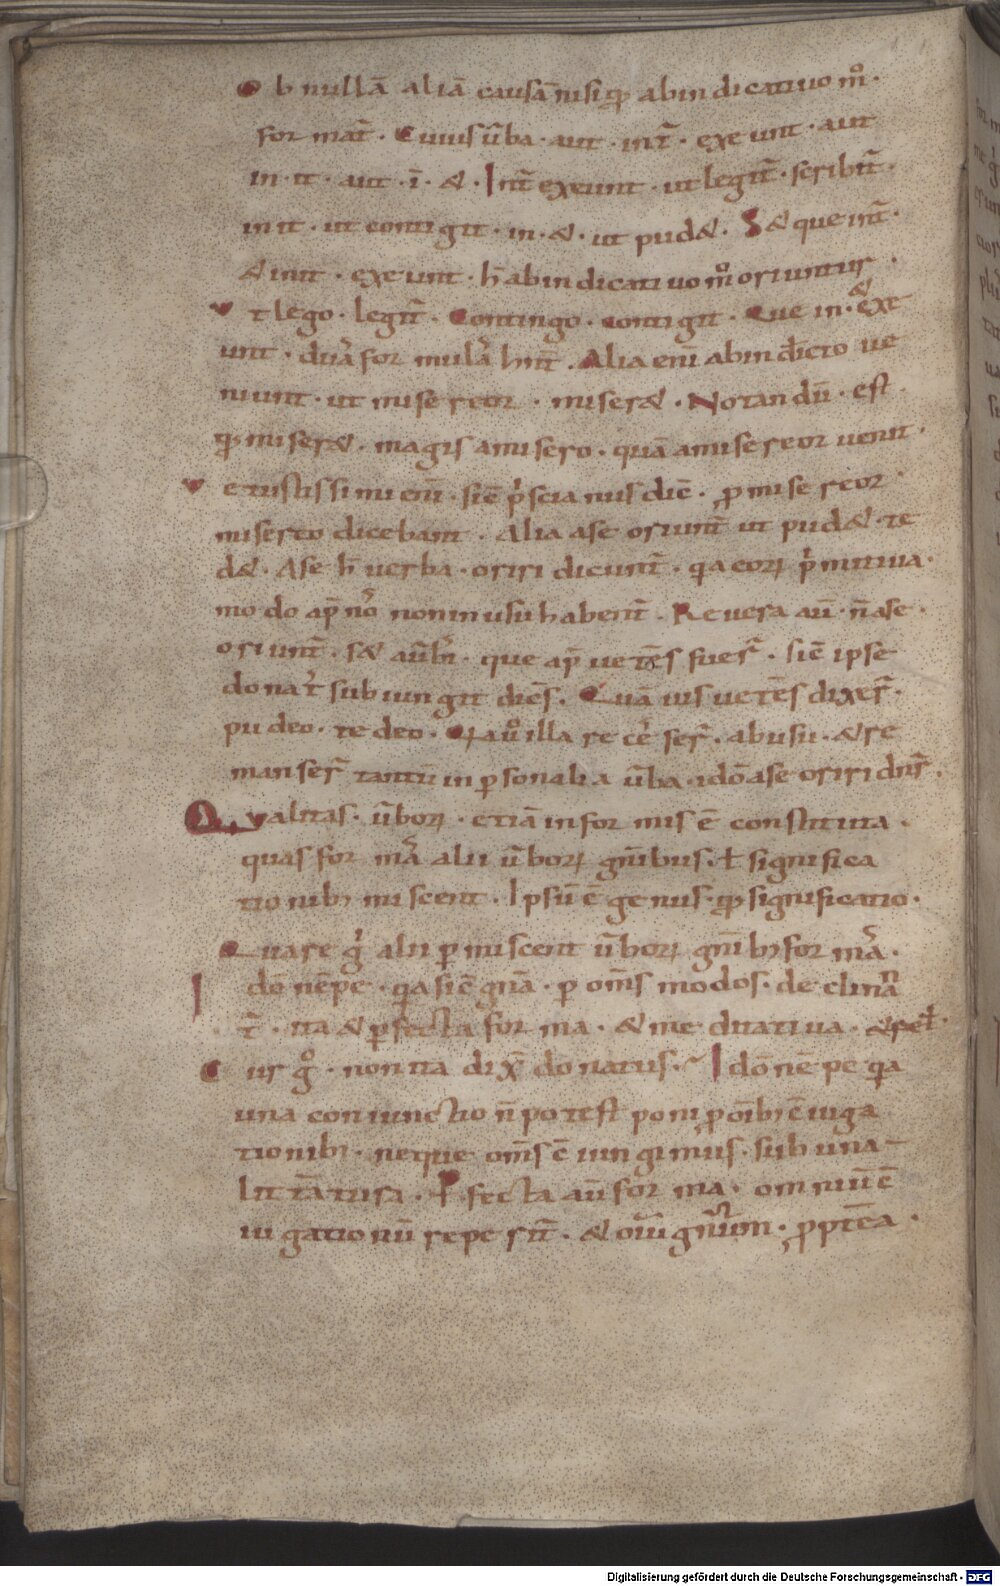 Ob nullā aliā causā nisi qđ ab indicatiuo mͦ.
format̄. Cuius ūba. aut. in t̄. exeunt. aut
in. it. aut. ī. &. Int̄ exeunt. ut legit̄. scribit̄.
in it. ut contigit. in. &. ut pud&. S& que int̄.
& in it. exeunt. h̄ ab indicatiuo mͦ oriuntur.
Vt lego. legit̄. Contingo. contigit. Que in. & exe
unt. duā formulā hnt̄. Alia eni ab indicto ue
niunt. ut misereor. miser&. Notandū. est
qđ miser&. magis a misero. quā a misereor uenit.
Vetustissimi eni. sic̄ p̄scianus dic̄. p misereor
misereo dicebant. Alia a se oriunt̄ ut pud&. te
d&. A se h̄ uerba. oriri dicunt̄. q̄a eoꝝ p̄mitiua.
modo ap̄ nō non in usu habent̄. Reuera aū. n̄ a se.
oriunt̄. s& que ap̄ uet̄es fuer̄. sic̄ ipse
donat̄ subiungit dic̄s. Quāuis uet̄es dixer̄.
pudeo. tedeo. illa recesser̄. ab usu. & re
manser̄ tantū inpersonalia ūba. idō a se oriri dnr̄.
Qualitas. ūboꝝ. etiā in formis ē constituta.
quas formā alii ūboꝝ gn̄ibus. ł significa
tionibꝫ miscent. Ipsū ē genus. qđ significatio.
Quare g̊ alii pmiscent ūboꝝ gn̄ibꝫ formā.
Idō nēpe. q̄a sic̄ gnā. p om̄s modos. declinan
t̄. ita & pfecta forma. & meditatiua. & rel̄.
Cur g̊. non ita dix̄ donatus. Idō nēpe q̄a
una coniunctio n̄ potest poni p oībꝫ c̄iuga
tionibꝫ. neque om̄s c̄iungimus. sub una
litt̄atura. Pfecta aū forma. omniū c̄
iugationū reperit̄. & oīū gn̄um. ppt̄ea.
Digitalisierung gefördert durch die Deutsche Forschungsgemeinschaft - DFG